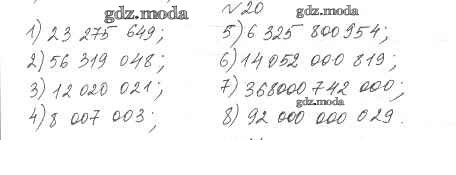 gdz.moda
№20
gdz.moda
1) 23 275 649;
2) 56 319 048;
3) 12 020 021;
4) 8 007 003;
5) 6 325 800 954;
6) 14 052 000 819;
7) 368000 742 000;
gdz.moda
8) 92 000 000 029.